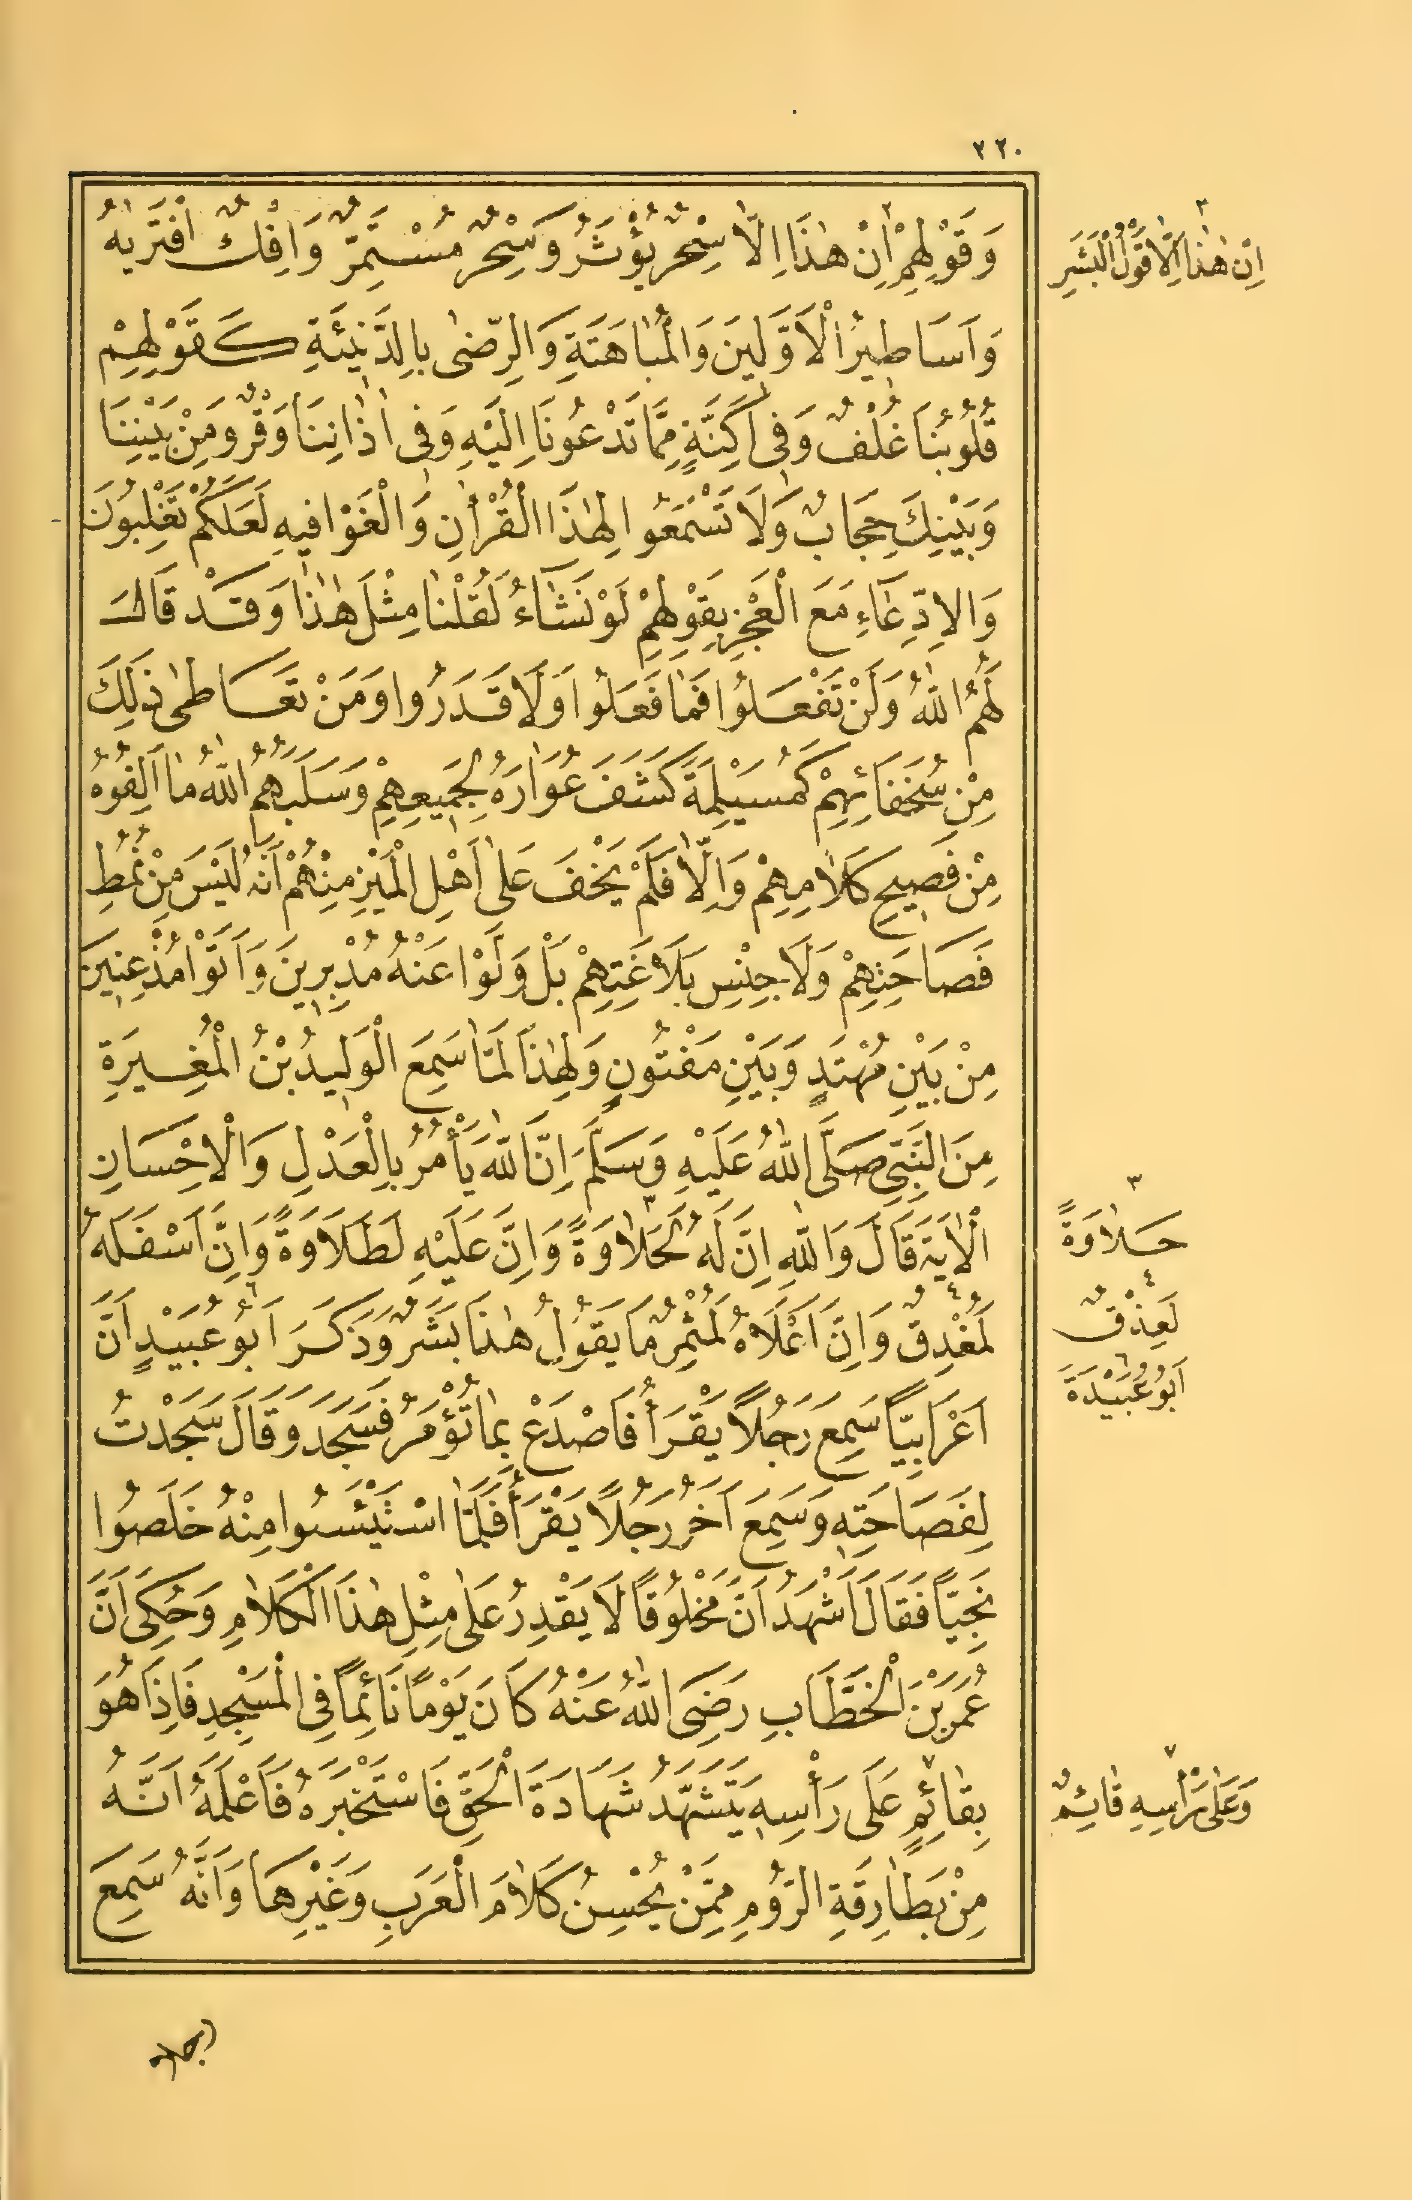 ٢٢٠
وَقَوْلِهِمْ اِنْ هٰذَا اِلَّا سِحْرٌ يُؤْثَرُ وَسِحْرٌ مُسْتَمِرٌّ وَاِفْكٌ افْتَرٰيهُ
وَاَسَاطِيرُ الْاَوَّلِينَ وَالْمُبَاهَتَةِ وَالرِّضٰى بِالدَّنِيئَةِ كَقَوْلِهِمْ
قُلُوبُنَا غُلْفٌ وَفِى اَكِنَّةٍ مِمَّا تَدْعُونَا اِلَيْهِ وَفِى اٰذَانِنَا وَقْرٌ وَمِنْ بَيْنِنَا
وَبَيْنِكَ حِجَابٌ وَلَا تَسْمَعُوا لِهٰذَا الْقُرْاٰنِ وَالْغَوْا فِيهِ لَعَلَّكُمْ تَغْلِبُونَ
وَالاِدِّعَاءِ مَعَ الْعَجْزِ بِقَوْلِهِمْ لَوْ نَشَٓاءُ لَقُلْنَا مِثْلَ هٰذَا وَقَدْ قَالَ
لَهُمُ اللّٰهُ وَلَنْ تَفْعَلُوا فَمَا فَعَلُوا وَلَا قَدَرُوا وَمَنْ تَعَاطٰى ذٰلِكَ
مِنْ سُخَفَائِهِمْ كَمُسَيْلِمَةَ كَشَفَ عُوَارَهُ لِجَمِيعِهِمْ وَسَلَبَهُمُ اللّٰهُ مَا اَلِفُوهُ
مِنْ فَصِيحِ كَلَامِهِمْ وَاِلَّا فَلَمْ يَخْفَ عَلٰى اَهْلِ الْمَيْزِ مِنْهُمْ اَنَّهُ لَيْسَ مِنْ نَمَطِ
فَصَاحَتِهِمْ وَلَا جِنْسِ بَلَاغَتِهِمْ بَلْ وَلَّوْا عَنْهُ مُدْبِرِينَ وَاَتَوْا مُذْعِنِينَ
مِنْ بَيْنِ مُهْتَدٍ وَبَيْنِ مَفْتُونٍ وَلِهٰذَا لَمَّا سَمِعَ الْوَلِيدُ بْنُ الْمُغِيرَةِ
مِنَ النَّبِيِّ صَلَّى اللّٰهُ عَلَيْهِ وَسَلَّمَ اِنَّ اللّٰهَ يَأْمُرُ بِالْعَدْلِ وَالْاِحْسَانِ
الْاٰيَةَ قَالَ وَاللّٰهِ اِنَّ لَهُ لَحَلَاوَةً وَاِنَّ عَلَيْهِ لَطَلَاوَةً وَاِنَّ اَسْفَلَهُ
لَمُغْدِقٌ وَاِنَّ اَعْلَاهُ لَمُثْمِرٌ مَا يَقُولُ هٰذَا بَشَرٌ وَذَكَرَ اَبُو عُبَيْدٍ اَنَّ
اَعْرَابِيًّا سَمِعَ رَجُلًا يَقْرَأُ فَاصْدَعْ بِمَا تُؤْمَرُ فَسَجَدَ وَقَالَ سَجَدْتُ
لِفَصَاحَتِهِ وَسَمِعَ اٰخَرُ رَجُلًا يَقْرَأُ فَلَمَّا اسْتَيْئَسُوا مِنْهُ خَلَصُوا
نَجِيًّا فَقَالَ اَشْهَدُ اَنَّ مَخْلُوقًا لَا يَقْدِرُ عَلٰى مِثْلِ هٰذَا الْكَلَامِ وَحُكِىَ اَنَّ
عُمَرَ بْنَ الْخَطَّابِ رَضِىَ اللّٰهُ عَنْهُ كَانَ يَوْمًا نَائِمًا فِى الْمَسْجِدِ فَاِذَا هُوَ
بِقَائِمٍ عَلَى رَأْسِهِ يَتَشَهَّدُ شَهَادَةَ الْحَقِّ فَاسْتَخْبَرَهُ فَاَعْلَمَهُ اَنَّهُ
مِنْ بَطَارِقَةِ الرُّومِ مِمَّنْ يُحْسِنُ كَلَامَ الْعَرَبِ وَغَيْرِهَا وَاَنَّهُ سَمِعَ
٢
اِنْ هٰذَا اِلَّا قَوْلُ الْبَشَرِ
٣
حَلَاوَةً
٤
لَعِذْقٌ
٦
اَبُو عُبَيْدَةَ
٧
وَعَلٰى رَأْسِهِ قَائِمٌ